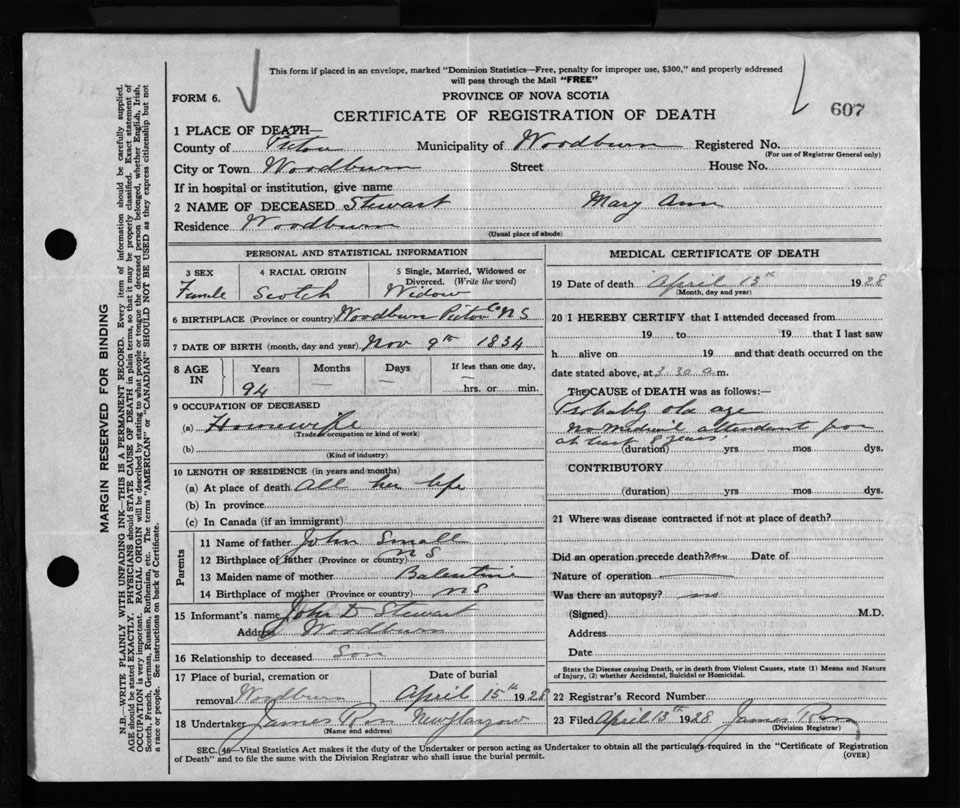 This form if placed in an envelope, marked "Dominion Statistics—Free, penalty for improper use, $300," and properly addressed
will pass through the Mail "FREE"
FORM 6.
PROVINCE OF NOVA SCOTIA
607
CERTIFICATE OF REGISTRATION OF DEATH
1 PLACE OF DEATH—
County of Pictou Municipality of Woodburn Registered No.
(For use of Registrar General only)
City or Town Woodburn Street House No.
If in hospital or institution, give name
2 NAME OF DECEASED Stewart Mary Ann
Residence Woodburn
(Usual place of abode)
PERSONAL AND STATISTICAL INFORMATION
3 SEX 4 RACIAL ORIGIN 5 Single, Married, Widowed or Divorced. (Write the word)
Female Scotch Widow
6 BIRTHPLACE (Province or country) Woodburn Pictou Co N S
7 DATE OF BIRTH (month, day and year) Nov 9th 1834
8 AGE IN Years Months Days If less than one day,
94 — — hrs. or min.
9 OCCUPATION OF DECEASED
(a) Housewife
(Trade, occupation or kind of work)
(b)
(Kind of industry)
10 LENGTH OF RESIDENCE (in years and months)
(a) At place of death All her life
(b) In province
(c) In Canada (if an immigrant)
Parents
11 Name of father John Small
12 Birthplace of father (Province or country) N S
13 Maiden name of mother Balentine
14 Birthplace of mother (Province or country) N S
15 Informant's name John D Stewart
Address Woodburn
16 Relationship to deceased Son
17 Place of burial, cremation or removal Woodburn Date of burial April 15th 1928
18 Undertaker James Ross New Glasgow
(Name and address)
MEDICAL CERTIFICATE OF DEATH
19 Date of death April 13th 1928
(Month, day and year)
20 I HEREBY CERTIFY that I attended deceased from
19 to 19 that I last saw
h alive on 19 and that death occurred on the
date stated above, at 3.30 a.m.
The CAUSE OF DEATH was as follows:—
Probably old age
no medical attendant for
at least 8 years.
(duration) yrs mos dys.
CONTRIBUTORY
(duration) yrs mos dys.
21 Where was disease contracted if not at place of death?
Did an operation precede death? no Date of
Nature of operation
Was there an autopsy? no
(Signed) M.D.
Address
Date
State the Disease causing Death, or in death from Violent Causes, state (1) Means and Nature
of Injury, (2) whether Accidental, Suicidal or Homicidal.
22 Registrar's Record Number
23 Filed April 13th 1928 James Ross
(Division Registrar)
SEC. 46—Vital Statistics Act makes it the duty of the Undertaker or person acting as Undertaker to obtain all the particulars required in the "Certificate of Registration
of Death" and to file the same with the Division Registrar who shall issue the burial permit.
(OVER)
MARGIN RESERVED FOR BINDING
N.B.—WRITE PLAINLY WITH UNFADING INK—THIS IS A PERMANENT RECORD. Every item of information should be carefully supplied.
AGE should be stated EXACTLY. PHYSICIANS should STATE CAUSE OF DEATH in plain terms, so that it may be properly classified. Exact statement of
OCCUPATION is very important. RACIAL ORIGIN will be described by stating to what people or tongue the deceased person belonged, whether English, Irish,
Scotch, French, German, Russian, Ruthenian, etc. The terms "AMERICAN" or "CANADIAN" SHOULD NOT BE USED as they express citizenship but not
a race or people. See instructions on back of Certificate.